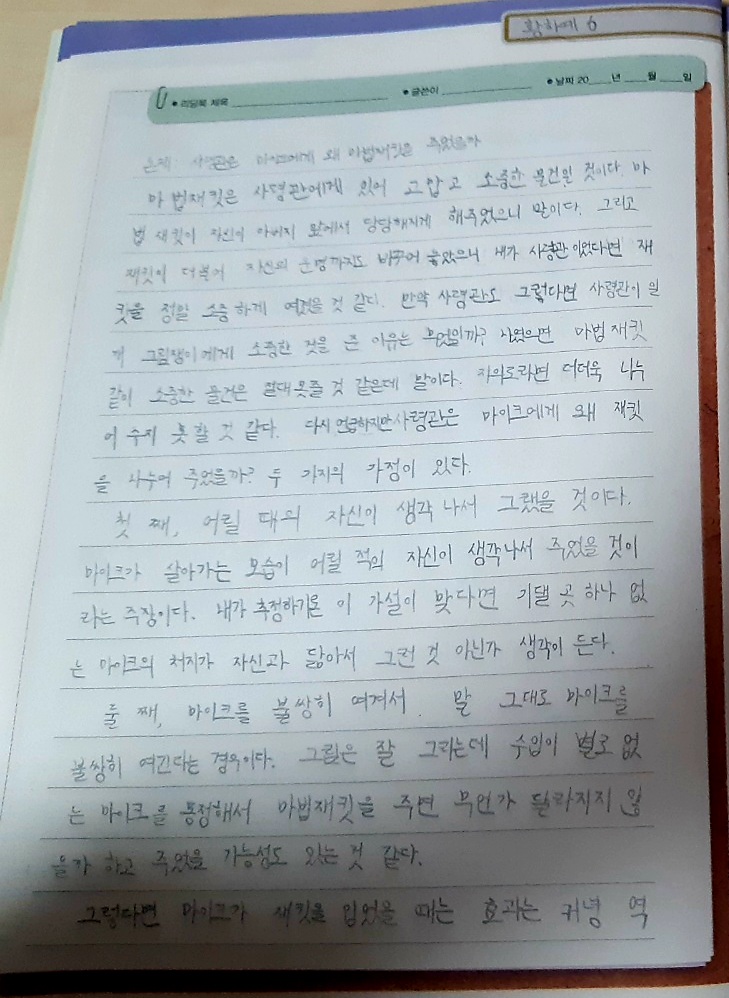 황하예 6
• 리딩북 제목 • 글쓴이 • 날짜 20 년 월 일
논제: 사령관은 마이크에게 왜 마법재킷을 주었을까
마법재킷은 사령관에게 있어 고맙고 소중한 물건일 것이다. 마
법 재킷이 자신이 아버지 앞에서 당당해지게 해주었으니 말이다. 그리고
재킷이 더불어 자신의 운명까지도 바꾸어 놓았으니 내가 사령관이었다면 재
킷을 정말 소중하게 여겼을 것 같다. 만약 사령관도 그렇다면 사령관이 일
개 그림쟁이에게 소중한 것을 준 이유는 무엇일까? 나였으면 마법재킷
같이 소중한 물건은 절대 못줄 것 같은데 말이다. 자의로라면 더더욱 나누
어 주지 못할 것 같다. 다시 언급하지만 사령관은 마이크에게 왜 재킷
을 나누어 주었을까? 두 가지의 가정이 있다.
첫 째, 어릴 때의 자신이 생각나서 그랬을 것이다.
마이크가 살아가는 모습이 어릴 적의 자신이 생각나서 주었을 것이
라는 주장이다. 내가 추정하기론 이 가설이 맞다면 기댈 곳 하나 없
는 마이크의 처지가 자신과 닮아서 그런 것 아닌가 생각이 든다.
둘 째, 마이크를 불쌍히 여겨서. 말 그대로 마이크를
불쌍히 여긴다는 경우이다. 그림은 잘 그리는데 수입이 별로 없
는 마이크를 동정해서 마법재킷을 주면 무언가 달라지지 않
을까 하고 주었을 가능성도 있는 것 같다.
그렇다면 마이크가 재킷을 입었을 때는 효과는 커녕 역